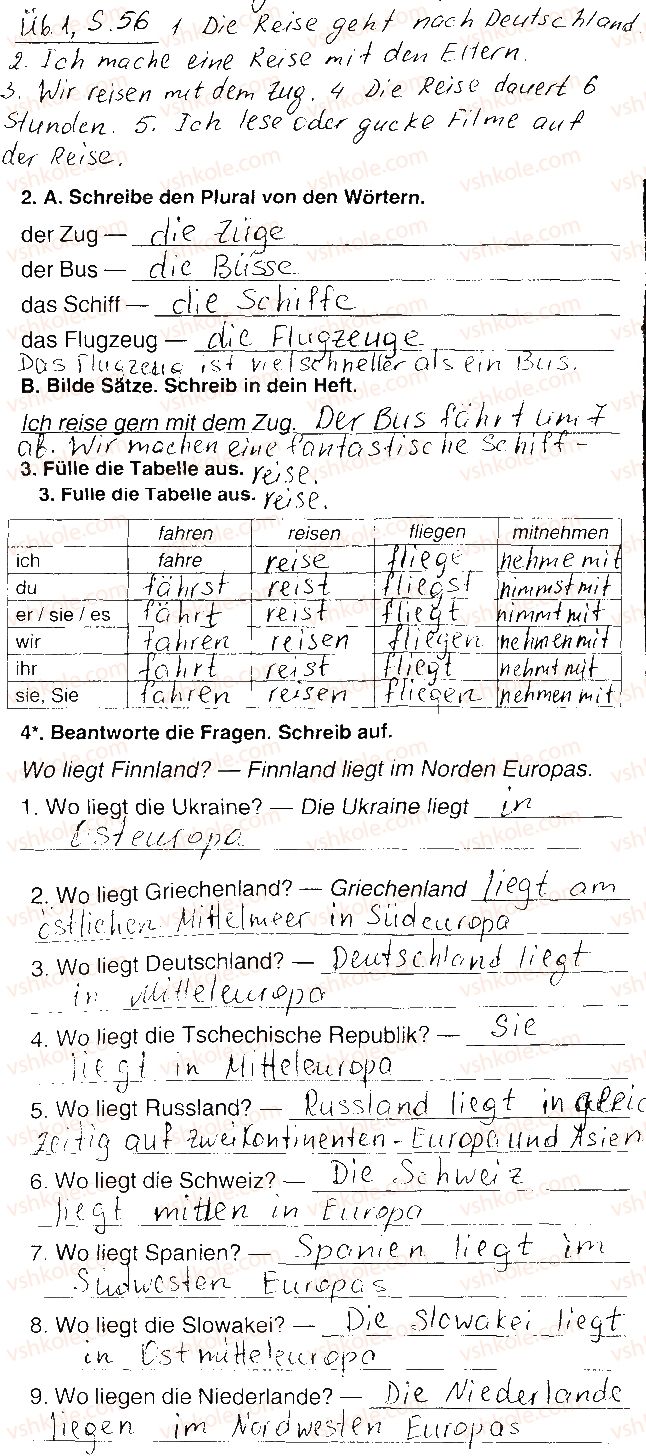 Üb.1, S.56 1 Die Reise geht nach Deutschland.
2. Ich mache eine Reise mit den Eltern.
3. Wir reisen mit dem Zug. 4 Die Reise dauert 6
Stunden. 5. Ich lese oder gucke Filme auf
der Reise.
2. A. Schreibe den Plural von den Wörtern.
der Zug — die Züge
der Bus — die Büsse
das Schiff — die Schiffe
das Flugzeug — die Flugzeuge
Das Flugzeug ist viel schneller als ein Bus.
B. Bilde Sätze. Schreib in dein Heft.
Ich reise gern mit dem Zug. Der Bus fährt um 7
ab. Wir machen eine fantastische Schiff-
3. Fülle die Tabelle aus. reise.
3. Fulle die Tabelle aus. reise.
fahren reisen fliegen mitnehmen
ich fahre reise fliege nehme mit
du fährst reist fliegst nimmst mit
er / sie / es fährt reist fliegt nimmt mit
wir fahren reisen fliegen nehmen mit
ihr fahrt reist fliegt nehmt mit
sie, Sie fahren reisen fliegen nehmen mit
4*. Beantworte die Fragen. Schreib auf.
Wo liegt Finnland? — Finnland liegt im Norden Europas.
1. Wo liegt die Ukraine? — Die Ukraine liegt in
Osteuropa
2. Wo liegt Griechenland? — Griechenland liegt am
östlichen Mittelmeer in Südeuropa
3. Wo liegt Deutschland? — Deutschland liegt
in Mitteleuropa
4. Wo liegt die Tschechische Republik? — Sie
liegt in Mitteleuropa
5. Wo liegt Russland? — Russland liegt in gleic
zeitig auf zwei Kontinenten - Europa und Asien
6. Wo liegt die Schweiz? — Die Schweiz
liegt mitten in Europa
7. Wo liegt Spanien? — Spanien liegt im
Südwesten Europas
8. Wo liegt die Slowakei? — Die Slowakei liegt
in Ostmitteleuropa
9. Wo liegen die Niederlande? — Die Niederlande
liegen im Nordwesten Europas